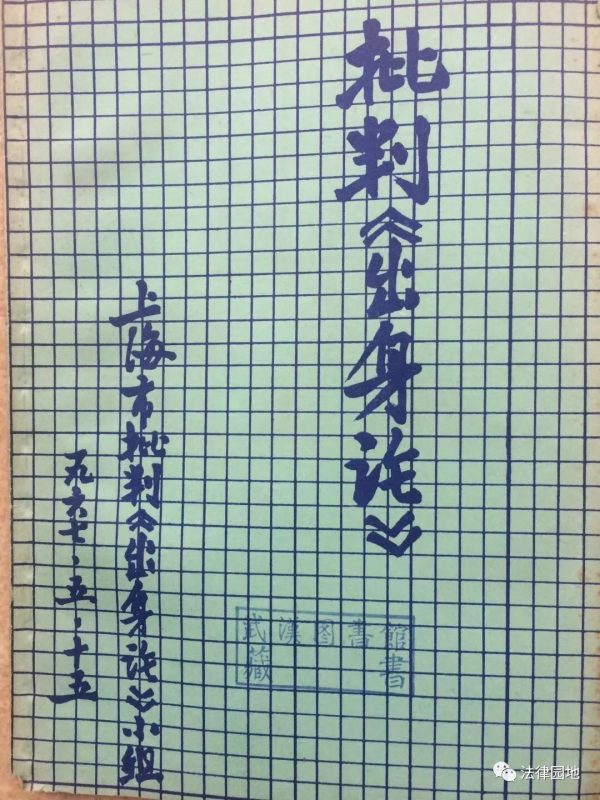 批判《出身论》
上海市批判《出身论》小组
一九六七·五·十五
武漢图書館
藏書
法律园地